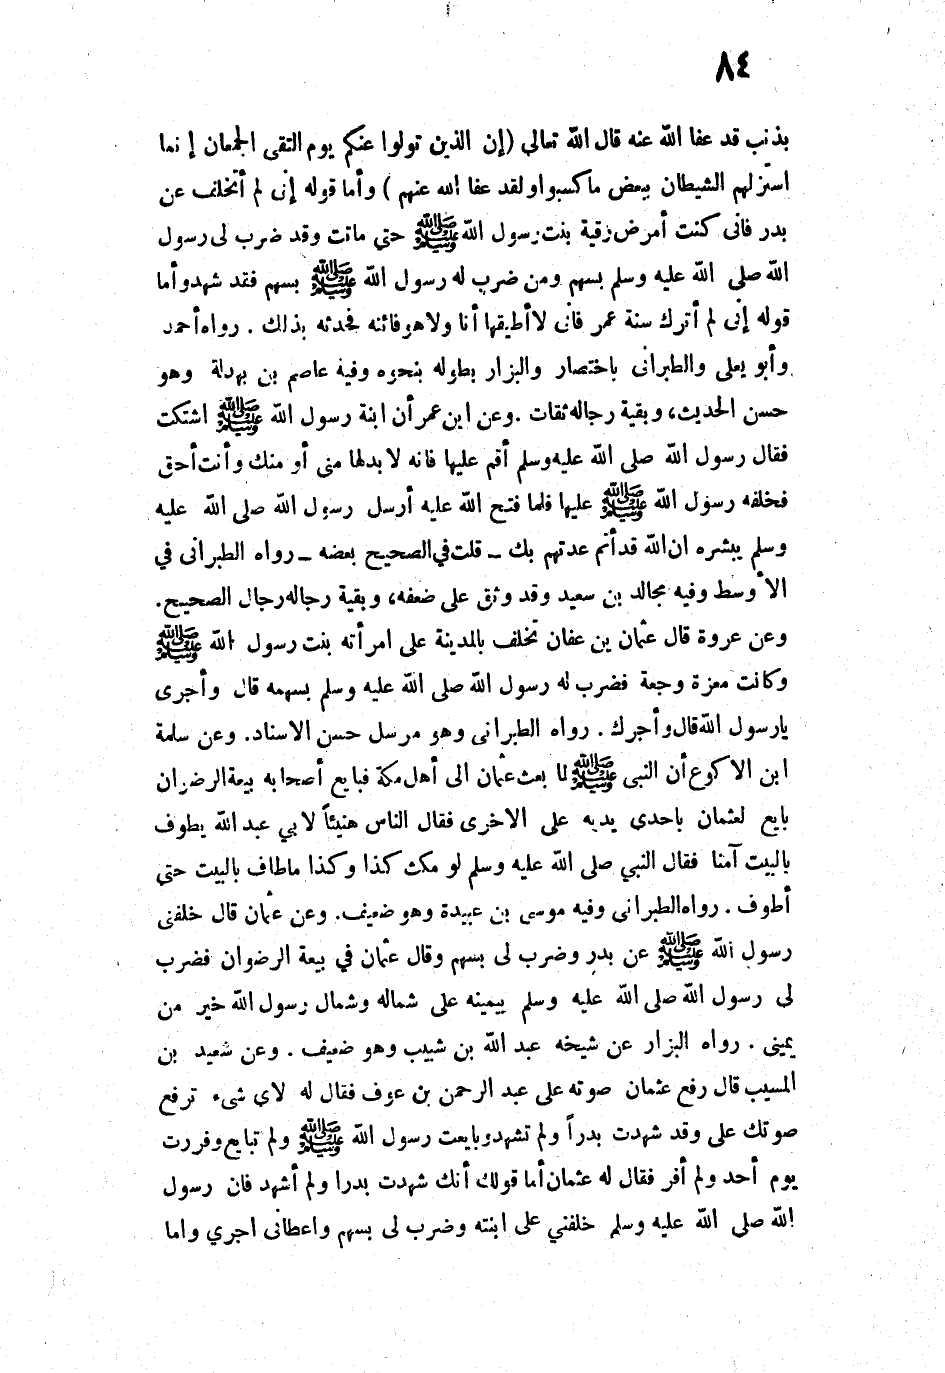 ٨٤
بذنب قد عفا الله عنه قال الله تعالي (إن الذين تولوا عنكم يوم التقى الجمعان إنما
استزلهم الشيطان ببعض ما كسبوا ولقد عفا الله عنهم ) وأما قوله إنى لم أتخلف عن
بدر فانى كنت أمرض رقية بنت رسول الله ﷺ حتي ماتت وقد ضرب لى رسول
الله صلى الله عليه وسلم بسهم ومن ضرب له رسول الله ﷺ بسهم فقد شهد وأما
قوله إنى لم أترك سنة عمر فانى لا أطيقها أنا ولا هو فائته فحدثه بذلك . رواه أحمد
وأبو يعلى والطبرانى باختصار والبزار بطوله بنحوه وفيه عاصم بن بهدلة وهو
حسن الحديث، وبقية رجاله ثقات . وعن ابن عمر أن ابنة رسول الله ﷺ اشتكت
فقال رسول الله صلى الله عليه وسلم أقم عليها فانه لا بد لها منى أو منك وأنت أحق
فخلفه رسول الله ﷺ عليها فلما فتح الله عليه أرسل رسول الله صلى الله عليه
وسلم يبشره ان الله قد أتم عدتهم بك ــ قلت في الصحيح بعضه ــ رواه الطبرانى في
الأوسط وفيه مجالد بن سعيد وقد وثق على ضعفه، وبقية رجاله رجال الصحيح.
وعن عروة قال عثمان بن عفان تخلف بالمدينة على امرأته بنت رسول الله ﷺ
وكانت معزة وجعة فضرب له رسول الله صلى الله عليه وسلم بسهمه قال وأجرى
يا رسول الله قال وأجرك . رواه الطبرانى وهو مرسل حسن الاسناد. وعن سلمة
ابن الاكوع أن النبى ﷺ لما بعث عثمان الى أهل مكة فبايع أصحابه بيعة الرضوان
بايع لعثمان باحدى يديه على الاخرى فقال الناس هنيئاً لابي عبد الله يطوف
بالبيت آمنا فقال النبي صلى الله عليه وسلم لو مكث كذا وكذا ماطاف بالبيت حتي
أطوف . رواه الطبرانى وفيه موسى بن عبيدة وهو ضعيف. وعن عثمان قال خلفنى
رسول الله ﷺ عن بدر وضرب لى بسهم وقال عثمان في بيعة الرضوان فضرب
لى رسول الله صلى الله عليه وسلم بيمينه على شماله وشمال رسول الله خير من
يمينى . رواه البزار عن شيخه عبد الله بن شبيب وهو ضعيف . وعن سعيد بن
المسيب قال رفع عثمان صوته على عبد الرحمن بن عوف فقال له لاى شىء ترفع
صوتك على وقد شهدت بدراً ولم تشهد وبايعت رسول الله ﷺ ولم تبايع وفررت
يوم أحد ولم أفر فقال له عثمان أما قولك أنك شهدت بدرا ولم أشهد فان رسول
الله صلى الله عليه وسلم خلفني على ابنته وضرب لى بسهم واعطانى اجري واما